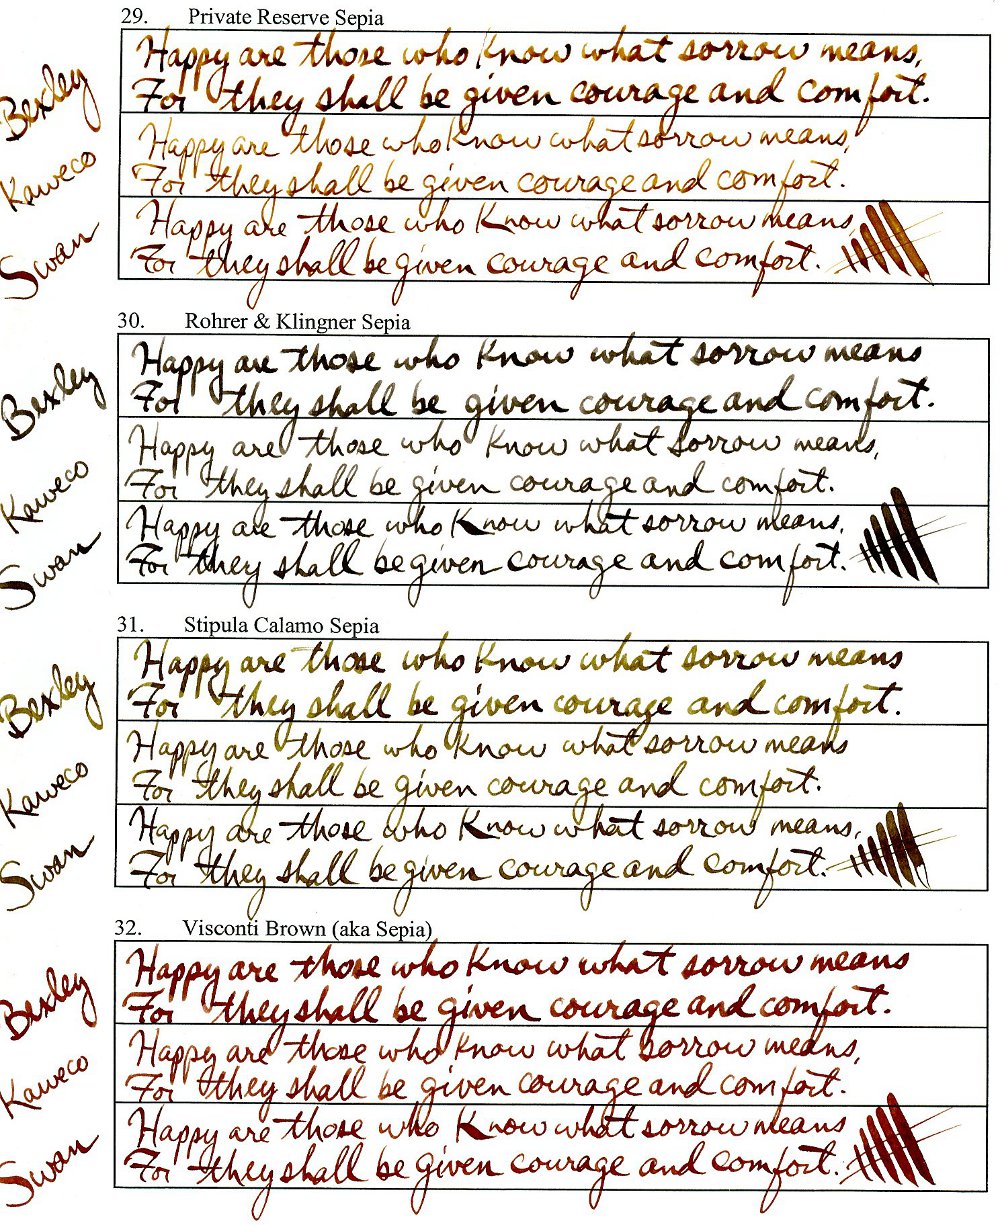 29. Private Reserve Sepia
Bexley
Happy are those who know what sorrow means,
For they shall be given courage and comfort.
Kaweco
Happy are those who know what sorrow means,
For they shall be given courage and comfort.
Swan
Happy are those who know what sorrow means,
For they shall be given courage and comfort.
30. Rohrer & Klingner Sepia
Bexley
Happy are those who know what sorrow means
For they shall be given courage and comfort.
Kaweco
Happy are those who know what sorrow means,
For they shall be given courage and comfort.
Swan
Happy are those who know what sorrow means,
For they shall be given courage and comfort.
31. Stipula Calamo Sepia
Bexley
Happy are those who know what sorrow means
For they shall be given courage and comfort.
Kaweco
Happy are those who know what sorrow means
For they shall be given courage and comfort.
Swan
Happy are those who know what sorrow means,
For they shall be given courage and comfort.
32. Visconti Brown (aka Sepia)
Bexley
Happy are those who know what sorrow means
For they shall be given courage and comfort.
Kaweco
Happy are those who know what sorrow means,
For they shall be given courage and comfort.
Swan
Happy are those who know what sorrow means
For they shall be given courage and comfort.